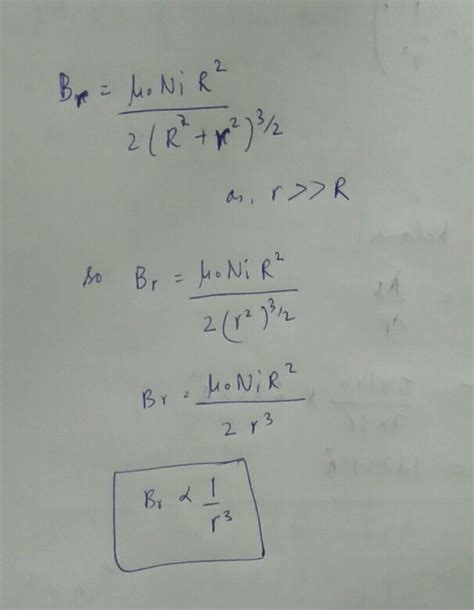 Br = μ₀NiR² / 2(R² + r²)^3/2
as, r >> R
so Br = μ₀NiR² / 2(r²)^3/2
Br = μ₀NiR² / 2r³
Br ∝ 1/r³